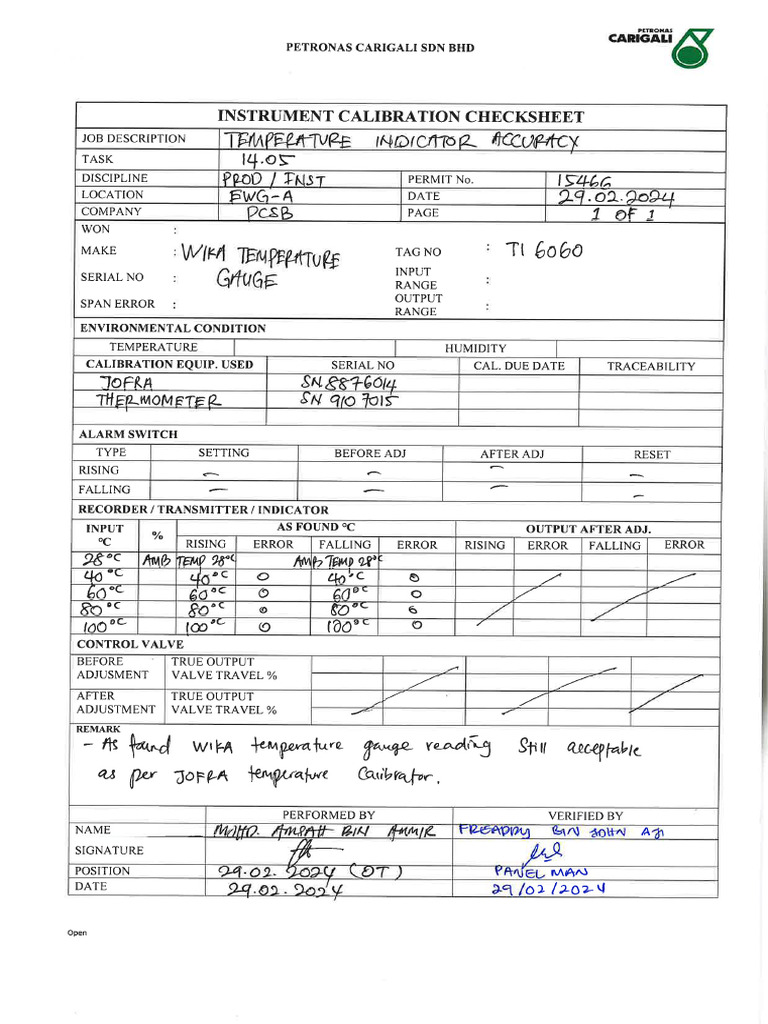 PETRONAS CARIGALI SDN BHD
PETRONAS
CARIGALI
INSTRUMENT CALIBRATION CHECKSHEET
JOB DESCRIPTION TEMPERATURE INDICATOR ACCURACY
TASK 14.05
DISCIPLINE PROD / INST PERMIT No. 15466
LOCATION EWG-A DATE 29.02.2024
COMPANY PCSB PAGE 1 OF 1
WON :
MAKE : WIKA TEMPERATURE TAG NO : TI 6060
SERIAL NO : GAUGE INPUT RANGE :
SPAN ERROR : OUTPUT RANGE :
ENVIRONMENTAL CONDITION
TEMPERATURE HUMIDITY
CALIBRATION EQUIP. USED SERIAL NO CAL. DUE DATE TRACEABILITY
JOFRA SN 8876014
THERMOMETER SN 9107015
ALARM SWITCH
TYPE SETTING BEFORE ADJ AFTER ADJ RESET
RISING – – – –
FALLING – – – –
RECORDER / TRANSMITTER / INDICATOR
INPUT °C % AS FOUND °C OUTPUT AFTER ADJ.
RISING ERROR FALLING ERROR RISING ERROR FALLING ERROR
28°C AMB TEMP 28°C AMB TEMP 28°C
40°C 40°C 0 40°C 0
60°C 60°C 0 60°C 0
80°C 80°C 0 80°C 0
100°C 100°C 0 100°C 0
CONTROL VALVE
BEFORE TRUE OUTPUT
ADJUSMENT VALVE TRAVEL %
AFTER TRUE OUTPUT
ADJUSTMENT VALVE TRAVEL %
REMARK
- As found WIKA temperature gauge reading still acceptable
as per JOFRA temperature calibrator.
PERFORMED BY VERIFIED BY
NAME MOHD. AMPAH BIN AMMIR FREADDY BIN JOHN
SIGNATURE
POSITION 29.02.2024 (OT) PANEL MAN
DATE 29.02.2024 29/02/2024
Open